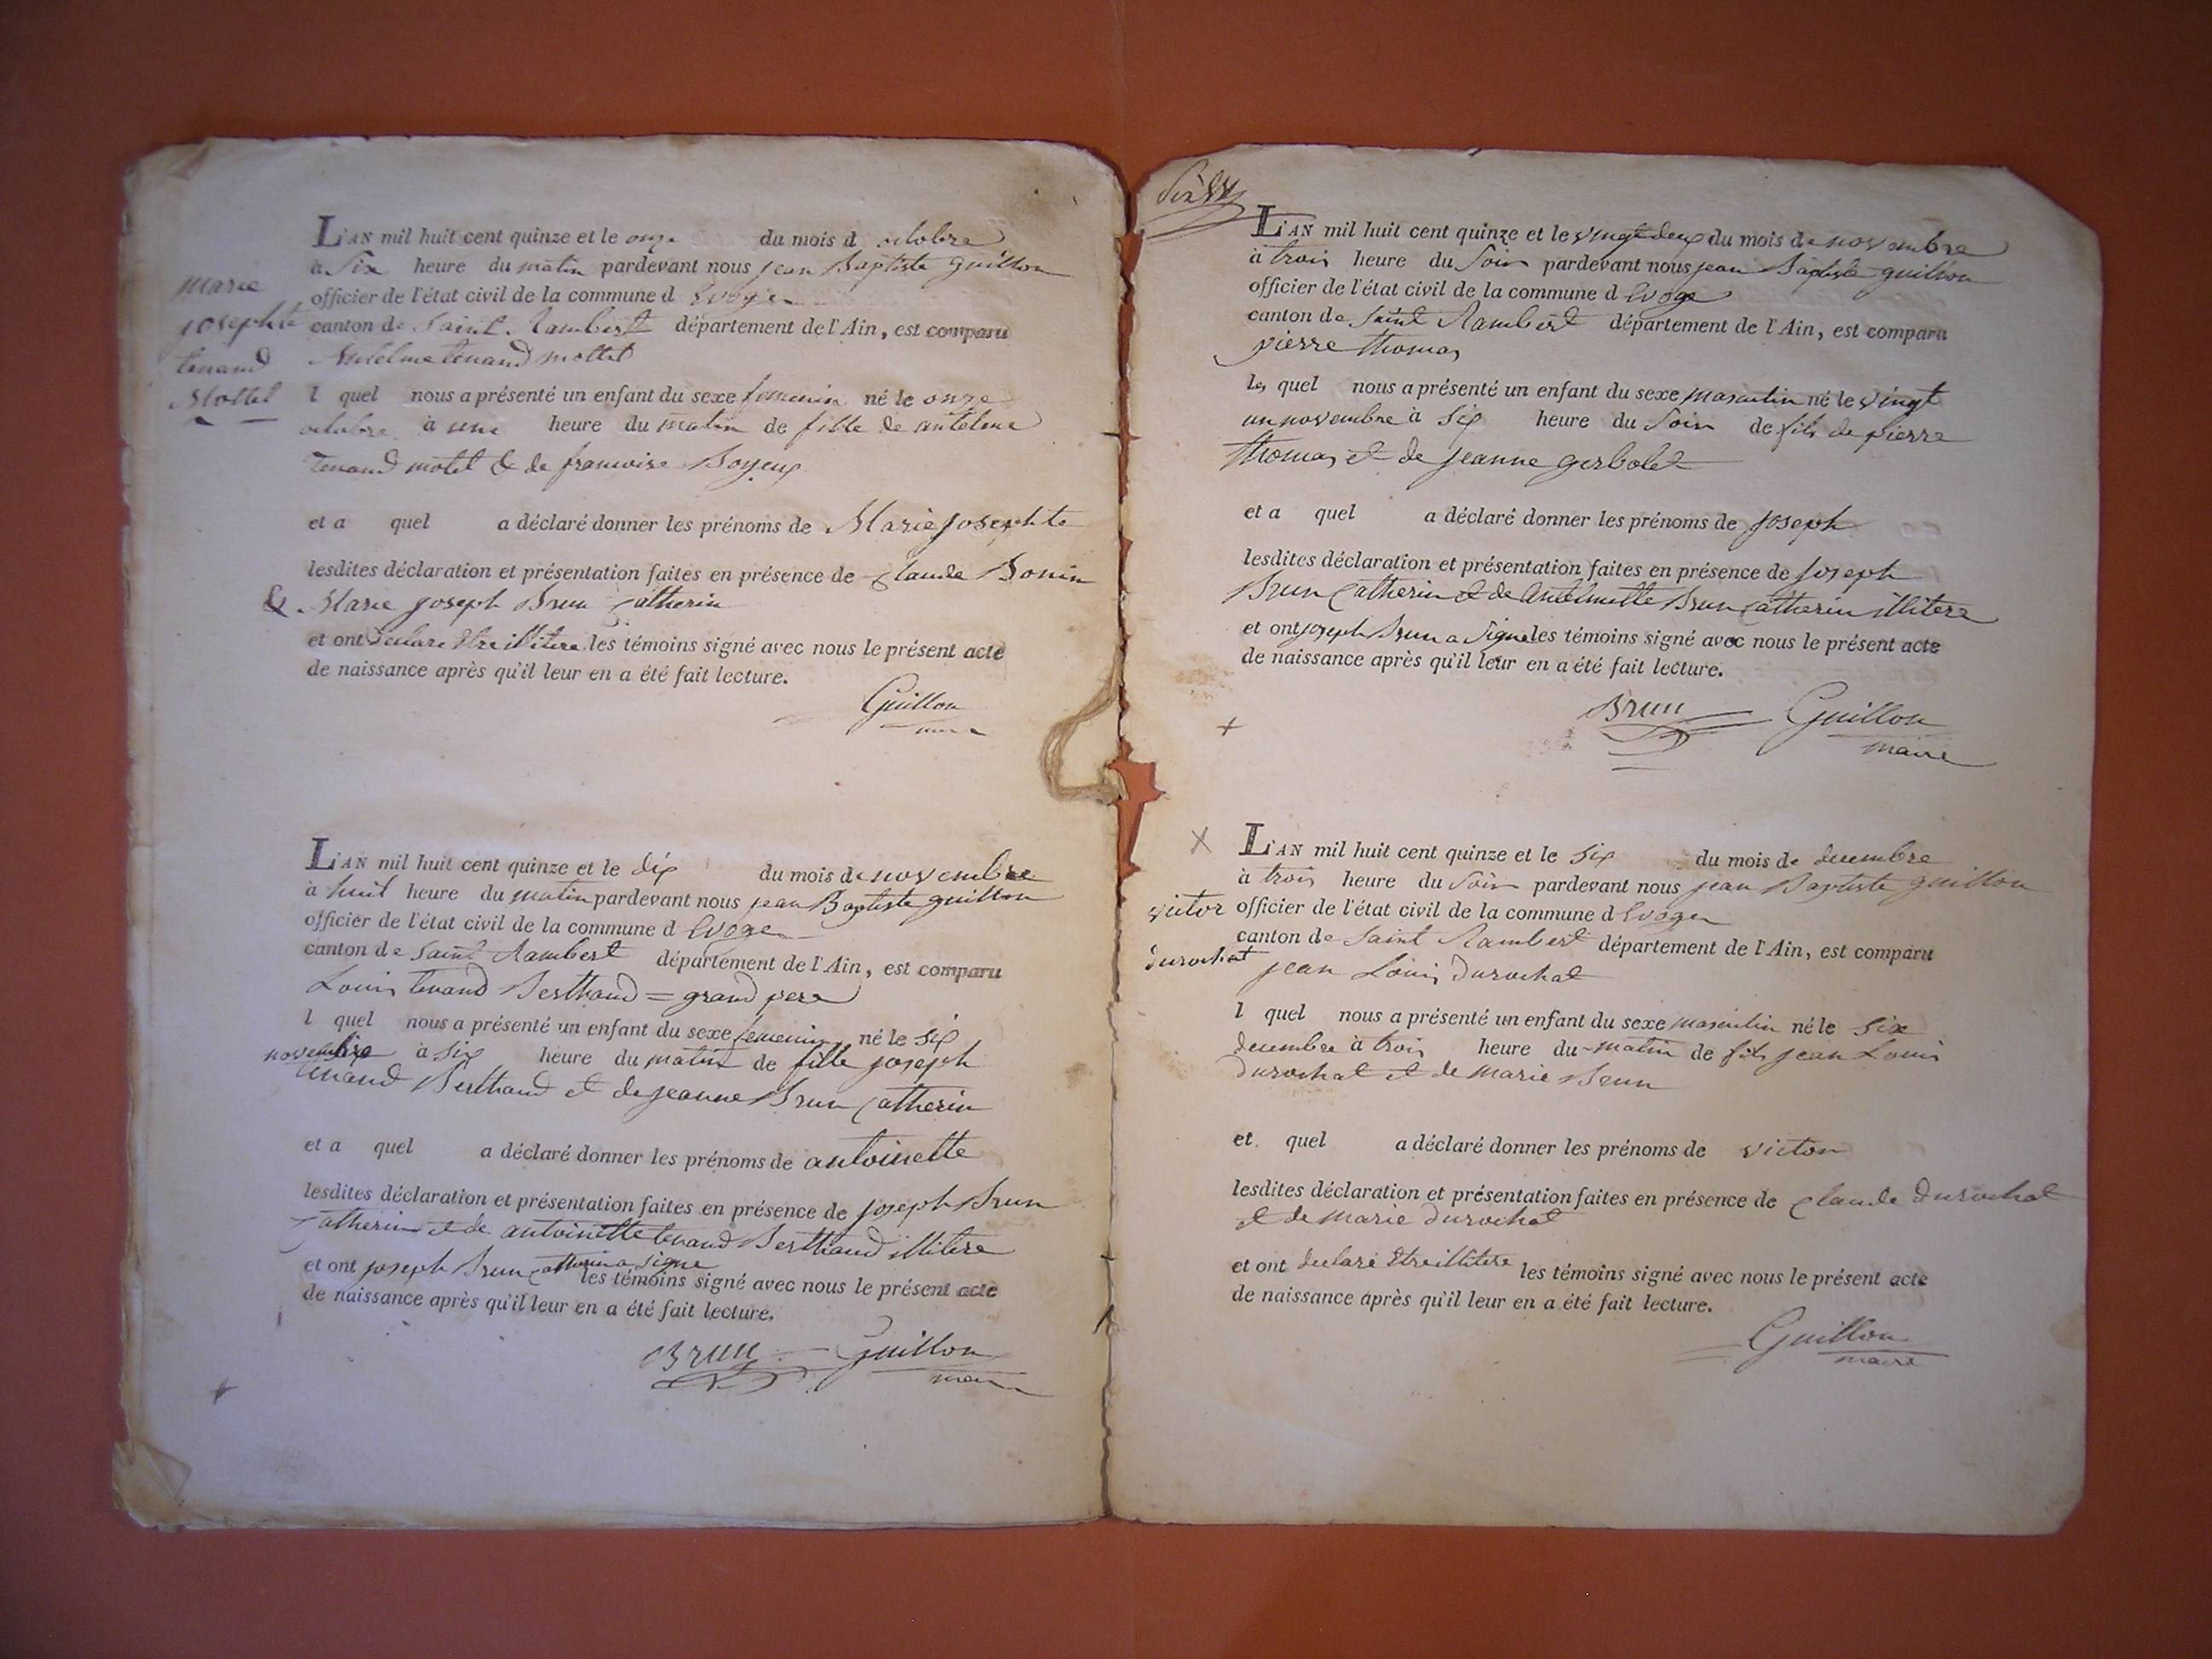 L'AN mil huit cent quinze et le onze du mois d octobre
à Six heure du matin pardevant nous jean Baptiste guillon
officier de l'état civil de la commune d Evoges
canton de Saint Rambert département de l'Ain, est comparu
Antelme tenand mottet
marie
josephte
tenand
Mottet
l quel nous a présenté un enfant du sexe femenin né le onze
octobre à une heure du matin de fille de antelme
Tenand motet & de francoise Boyeux
et a quel a déclaré donner les prénoms de Marie josephte
lesdites déclaration et présentation faites en présence de Claude Bonin
& Marie joseph Brun Catherin
et ont declare Etre illitere les témoins signé avec nous le présent acte
de naissance après qu'il leur en a été fait lecture.
Guillon
maire
L'AN mil huit cent quinze et le dix du mois de novembre
à huit heure du matin pardevant nous jean Baptiste guillon
officier de l'état civil de la commune d Evoges
canton de Saint Rambert département de l'Ain, est comparu
Louis tenand Berthaud = grand pere
l quel nous a présenté un enfant du sexe femenin né le six
novembre à six heure du matin de fille joseph
tenand Berthaud et de jeanne Brun Catherin
et a quel a déclaré donner les prénoms de antoinette
lesdites déclaration et présentation faites en présence de joseph Brun
Catherin et de antoinette tenand Berthaud illitere
et ont joseph Brun Catherin a signe les témoins signé avec nous le présent acte
de naissance après qu'il leur en a été fait lecture.
BRUN Guillon
maire
L'AN mil huit cent quinze et le vingt deux du mois de novembre
à trois heure du Soir pardevant nous jean Baptiste guillon
officier de l'état civil de la commune d Evoge
canton de Saint Rambert département de l'Ain, est comparu
pierre thomas
le quel nous a présenté un enfant du sexe masculin né le vingt
un novembre à six heure du Soir de fils de pierre
thomas et de jeanne gerbolet
et a quel a déclaré donner les prénoms de joseph
lesdites déclaration et présentation faites en présence de joseph
Brun Catherin et de Antelmette Brun Catherin illitere
et ont joseph Brun a Signe les témoins signé avec nous le présent acte
de naissance après qu'il leur en a été fait lecture.
BRUN Guillon
maire
L'AN mil huit cent quinze et le six du mois de decembre
à trois heure du Soir pardevant nous jean Baptiste guillon
victor
durochat
officier de l'état civil de la commune d Evoges
canton de Saint Rambert département de l'Ain, est comparu
jean Louis durochat
l quel nous a présenté un enfant du sexe masculin né le six
decembre à trois heure du matin de fils jean Louis
durochat et de marie Brun
et quel a déclaré donner les prénoms de victor
lesdites déclaration et présentation faites en présence de Claude durochat
et de marie durochat
et ont declare Etre illitere les témoins signé avec nous le présent acte
de naissance après qu'il leur en a été fait lecture.
Guillon
maire